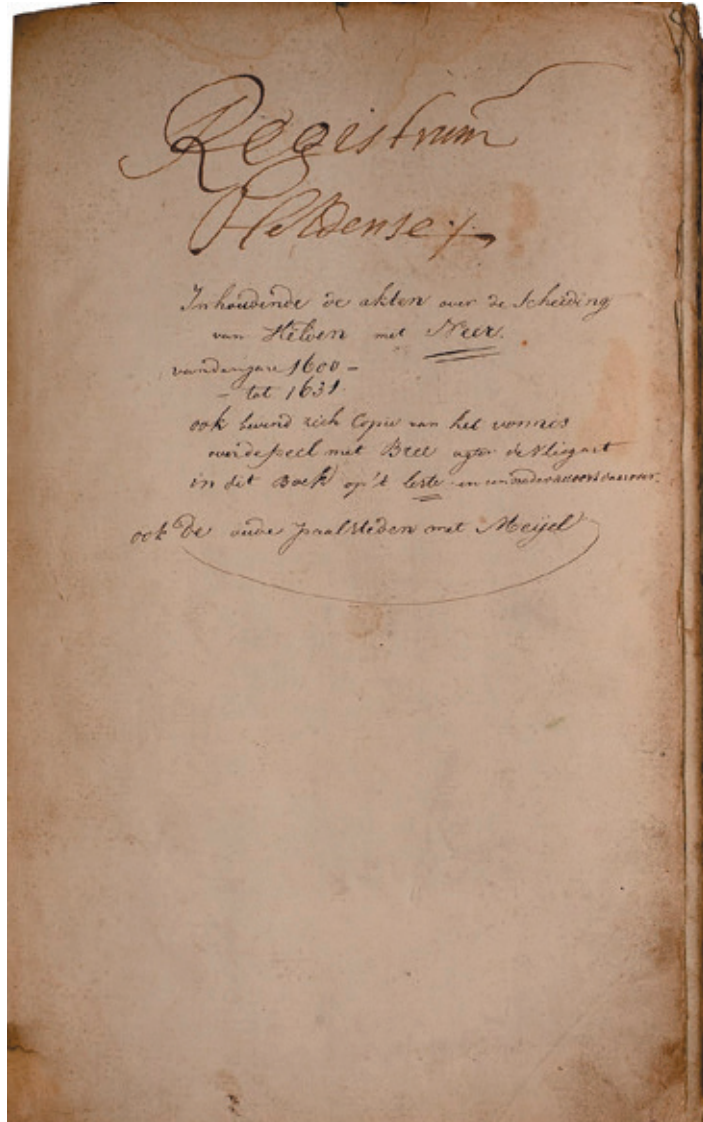 Registrum
Heldense
Inhoudende de akten over de Scheiding
van Helden met Neer.
vandenjare 1600 -
- tot 1631.
ook bevind zich Copie van het vonnis
met Bree agter de Vliegart
in dit Boek op't leste en een nader accoord daarover.
ook De oude paalsteden met Meijel